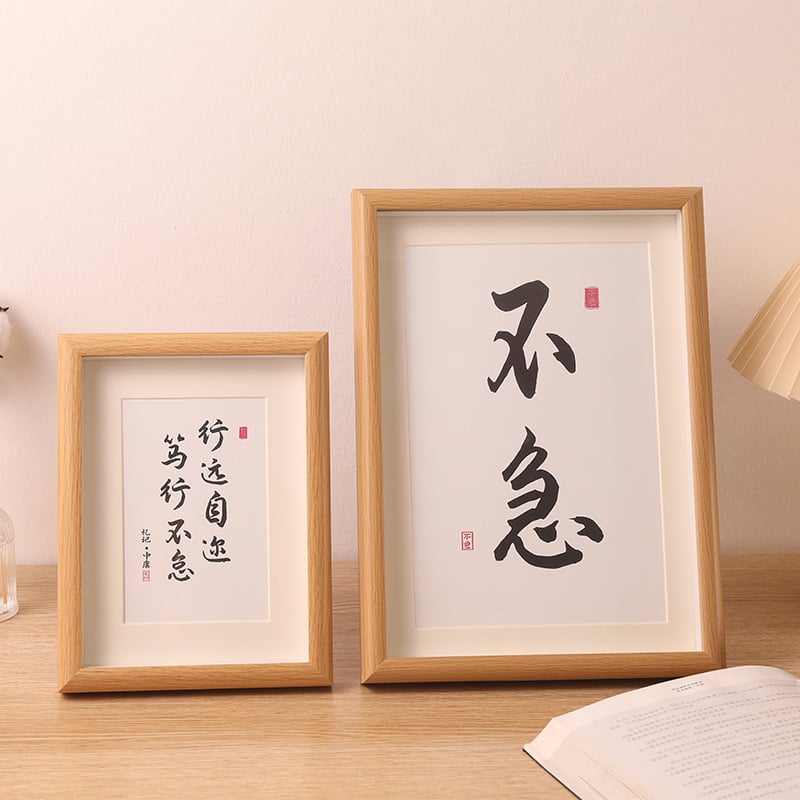 行远自迩
笃行不怠
礼记·中庸
不急
不急